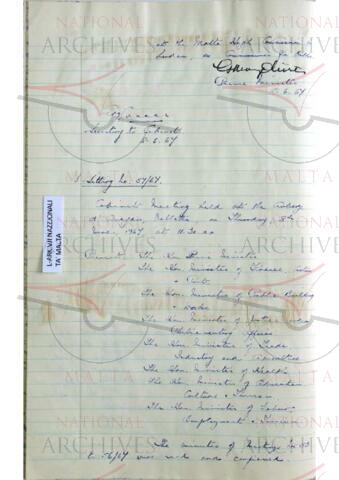 at the Malta High Commission
London, as
Prime Minister
5.6.67
Secretary to Cabinet
5.6.67
Sitting No. 57/67.
Cabinet Meeting held at the Auberge
d'Aragon, Valletta, on Thursday, 8th
June, 1967, at 11.30 a.m.
Present: The Hon. Prime Minister
The Hon. Minister of Finance,
The Hon. Minister of Public Building
& Works
The Hon. Minister of Justice and
Parliamentary Affairs
The Hon. Minister of Trade
Industry and Agriculture
The Hon. Minister of Health
The Hon. Minister of Education
Culture & Tourism
The Hon. Minister of Labour
Employment &
The minutes of Meetings No.
to 56/67 were read and confirmed.
L-ARKIVJI NAZZJONALI
TA' MALTA
NATIONAL
ARCHIVES
MALTA